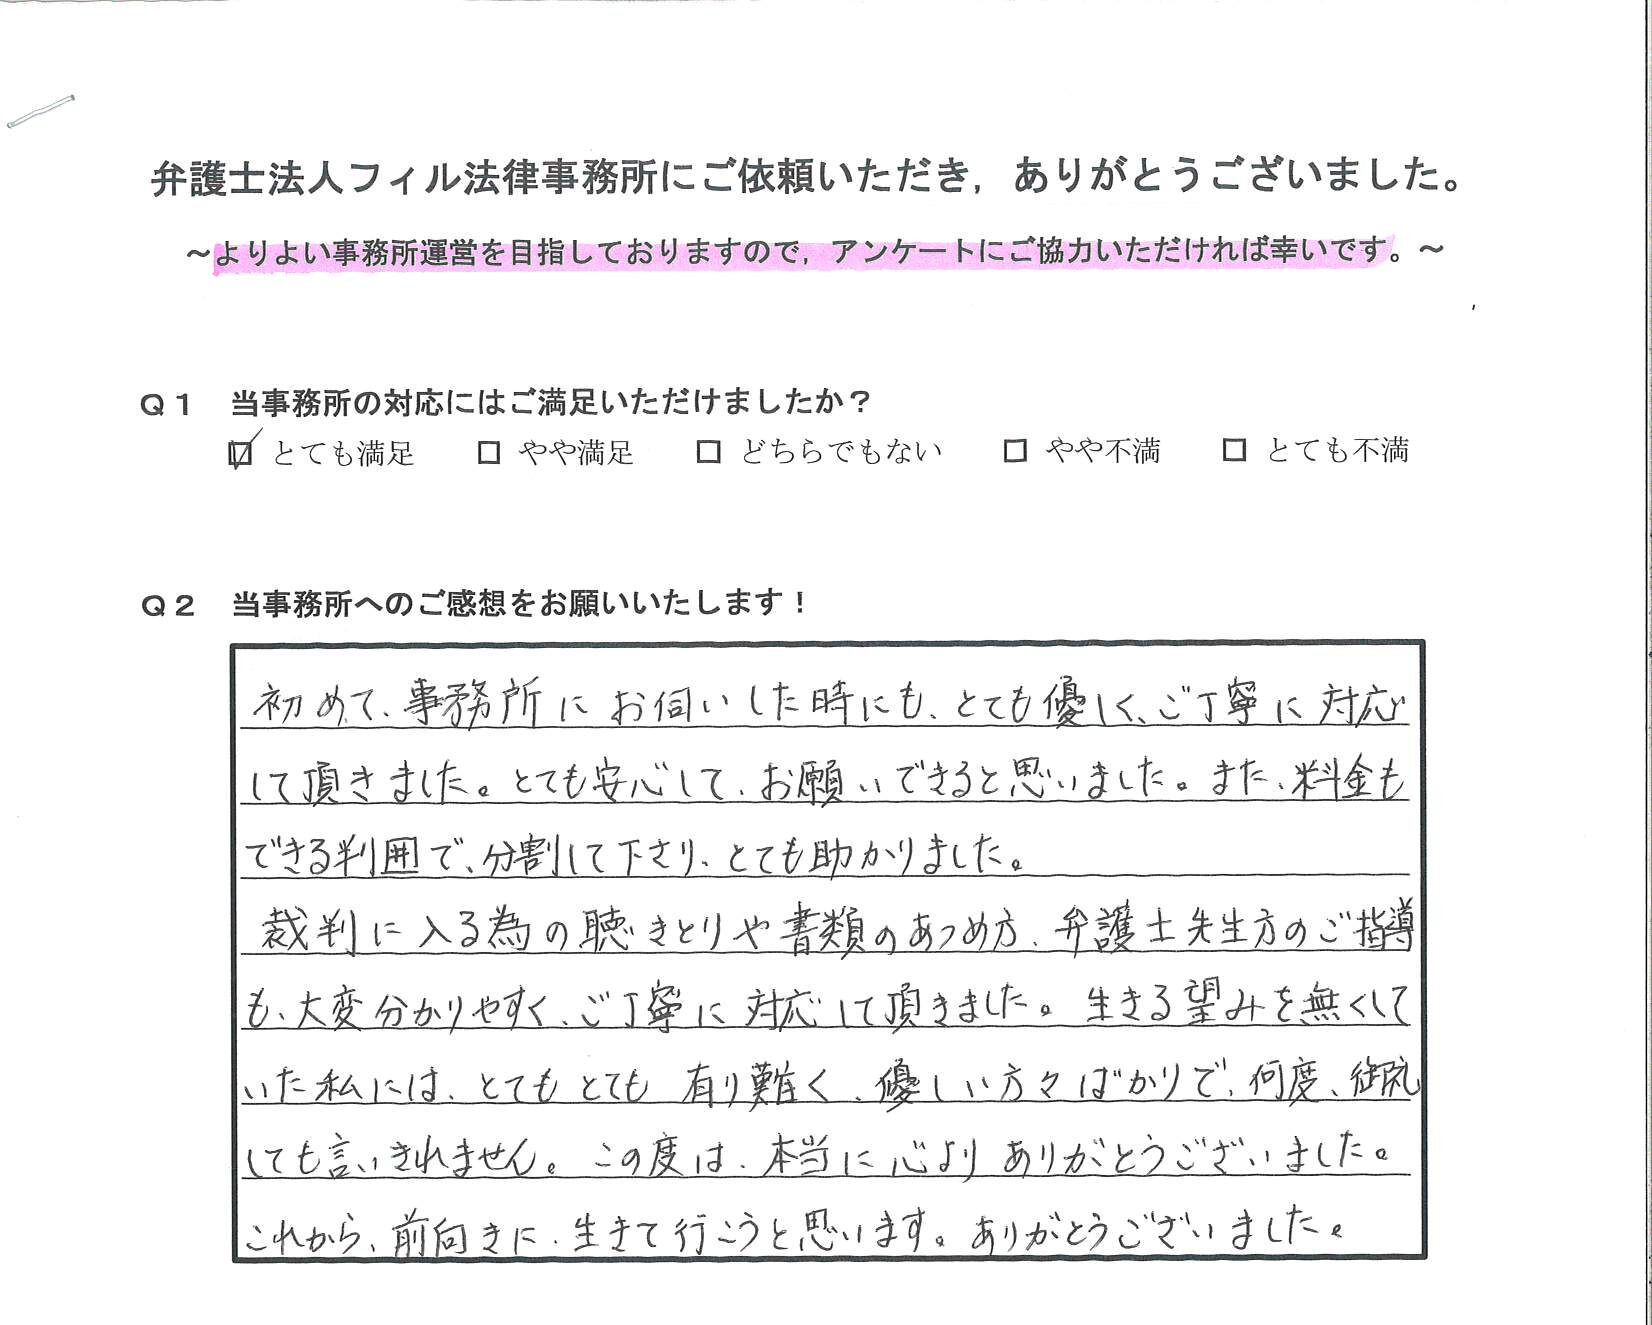 弁護士法人フィル法律事務所にご依頼いただき，ありがとうございました。
～よりよい事務所運営を目指しておりますので，アンケートにご協力いただければ幸いです。～
Ｑ１　当事務所の対応にはご満足いただけましたか？
☑ とても満足　□ やや満足　□ どちらでもない　□ やや不満　□ とても不満
Ｑ２　当事務所へのご感想をお願いいたします！
初めて、事務所にお伺いした時にも、とても優しく、ご丁寧に対応
して頂きました。とても安心して、お願いできると思いました。また、料金も
できる判囲で、分割して下さり、とても助かりました。
裁判に入る為の聴きとりや書類のあつめ方、弁護士先生方のご指導
も、大変分かりやすく、ご丁寧に対応して頂きました。生きる望みを無くして
いた私には、とてもとても有り難く、優しい方々ばかりで、何度、御礼
しても言いきれません。この度は、本当に心よりありがとうございました。
これから、前向きに、生きて行こうと思います。ありがとうございました。